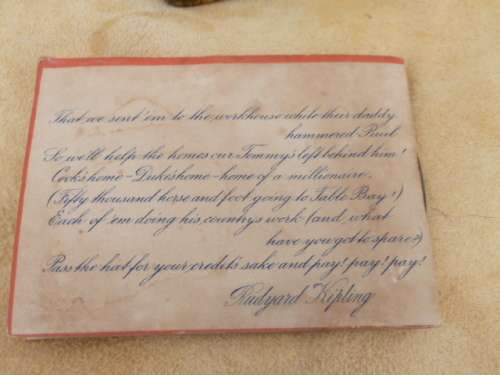 That we sent 'em to the workhouse while their daddy
hammered Paul
So we'll help the homes our Tommy's left behind him!
Cook's home - Duke's home - home of a millionaire.
(Fifty thousand horse and foot going to Table Bay!)
Each of 'em doing his country's work (and what
have you got to spare?)
Pass the hat for your credit's sake and pay! pay! pay!
Rudyard Kipling